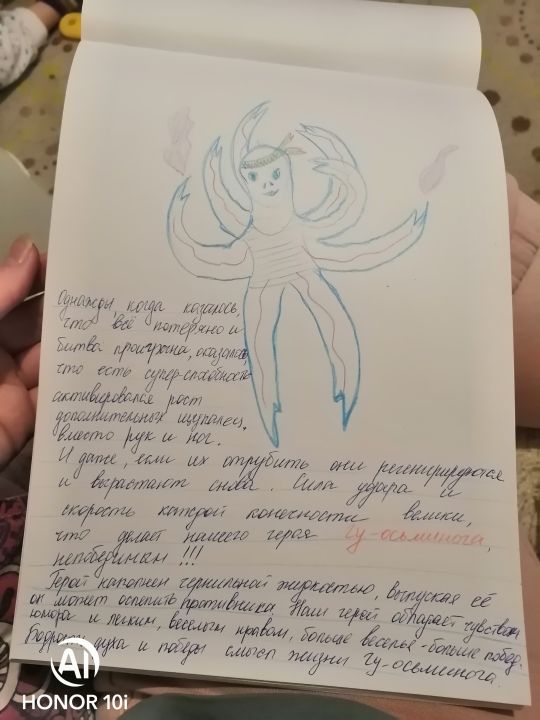 Однажды, когда казалось,
что всё потеряно и
битва проиграна, оказалось,
что есть супер-способность
активировался рост
дополнительных щупалец,
вместо рук и ног.
И даже, если их отрубить они регенирируются
и вырастают снова. Сила удара и
скорость каждой конечности велики,
что делает нашего героя Гу-осьминога,
непобедимым!!!
Герой наполнен чернильной жидкостью, выпуская её
он может ослепить противника. Наш герой обладает чувством
юмора и легким, веселым нравом, больше веселья - больше побед.
Бодрость духа и победы смысл жизни Гу-осьминога.
AI
HONOR 10i